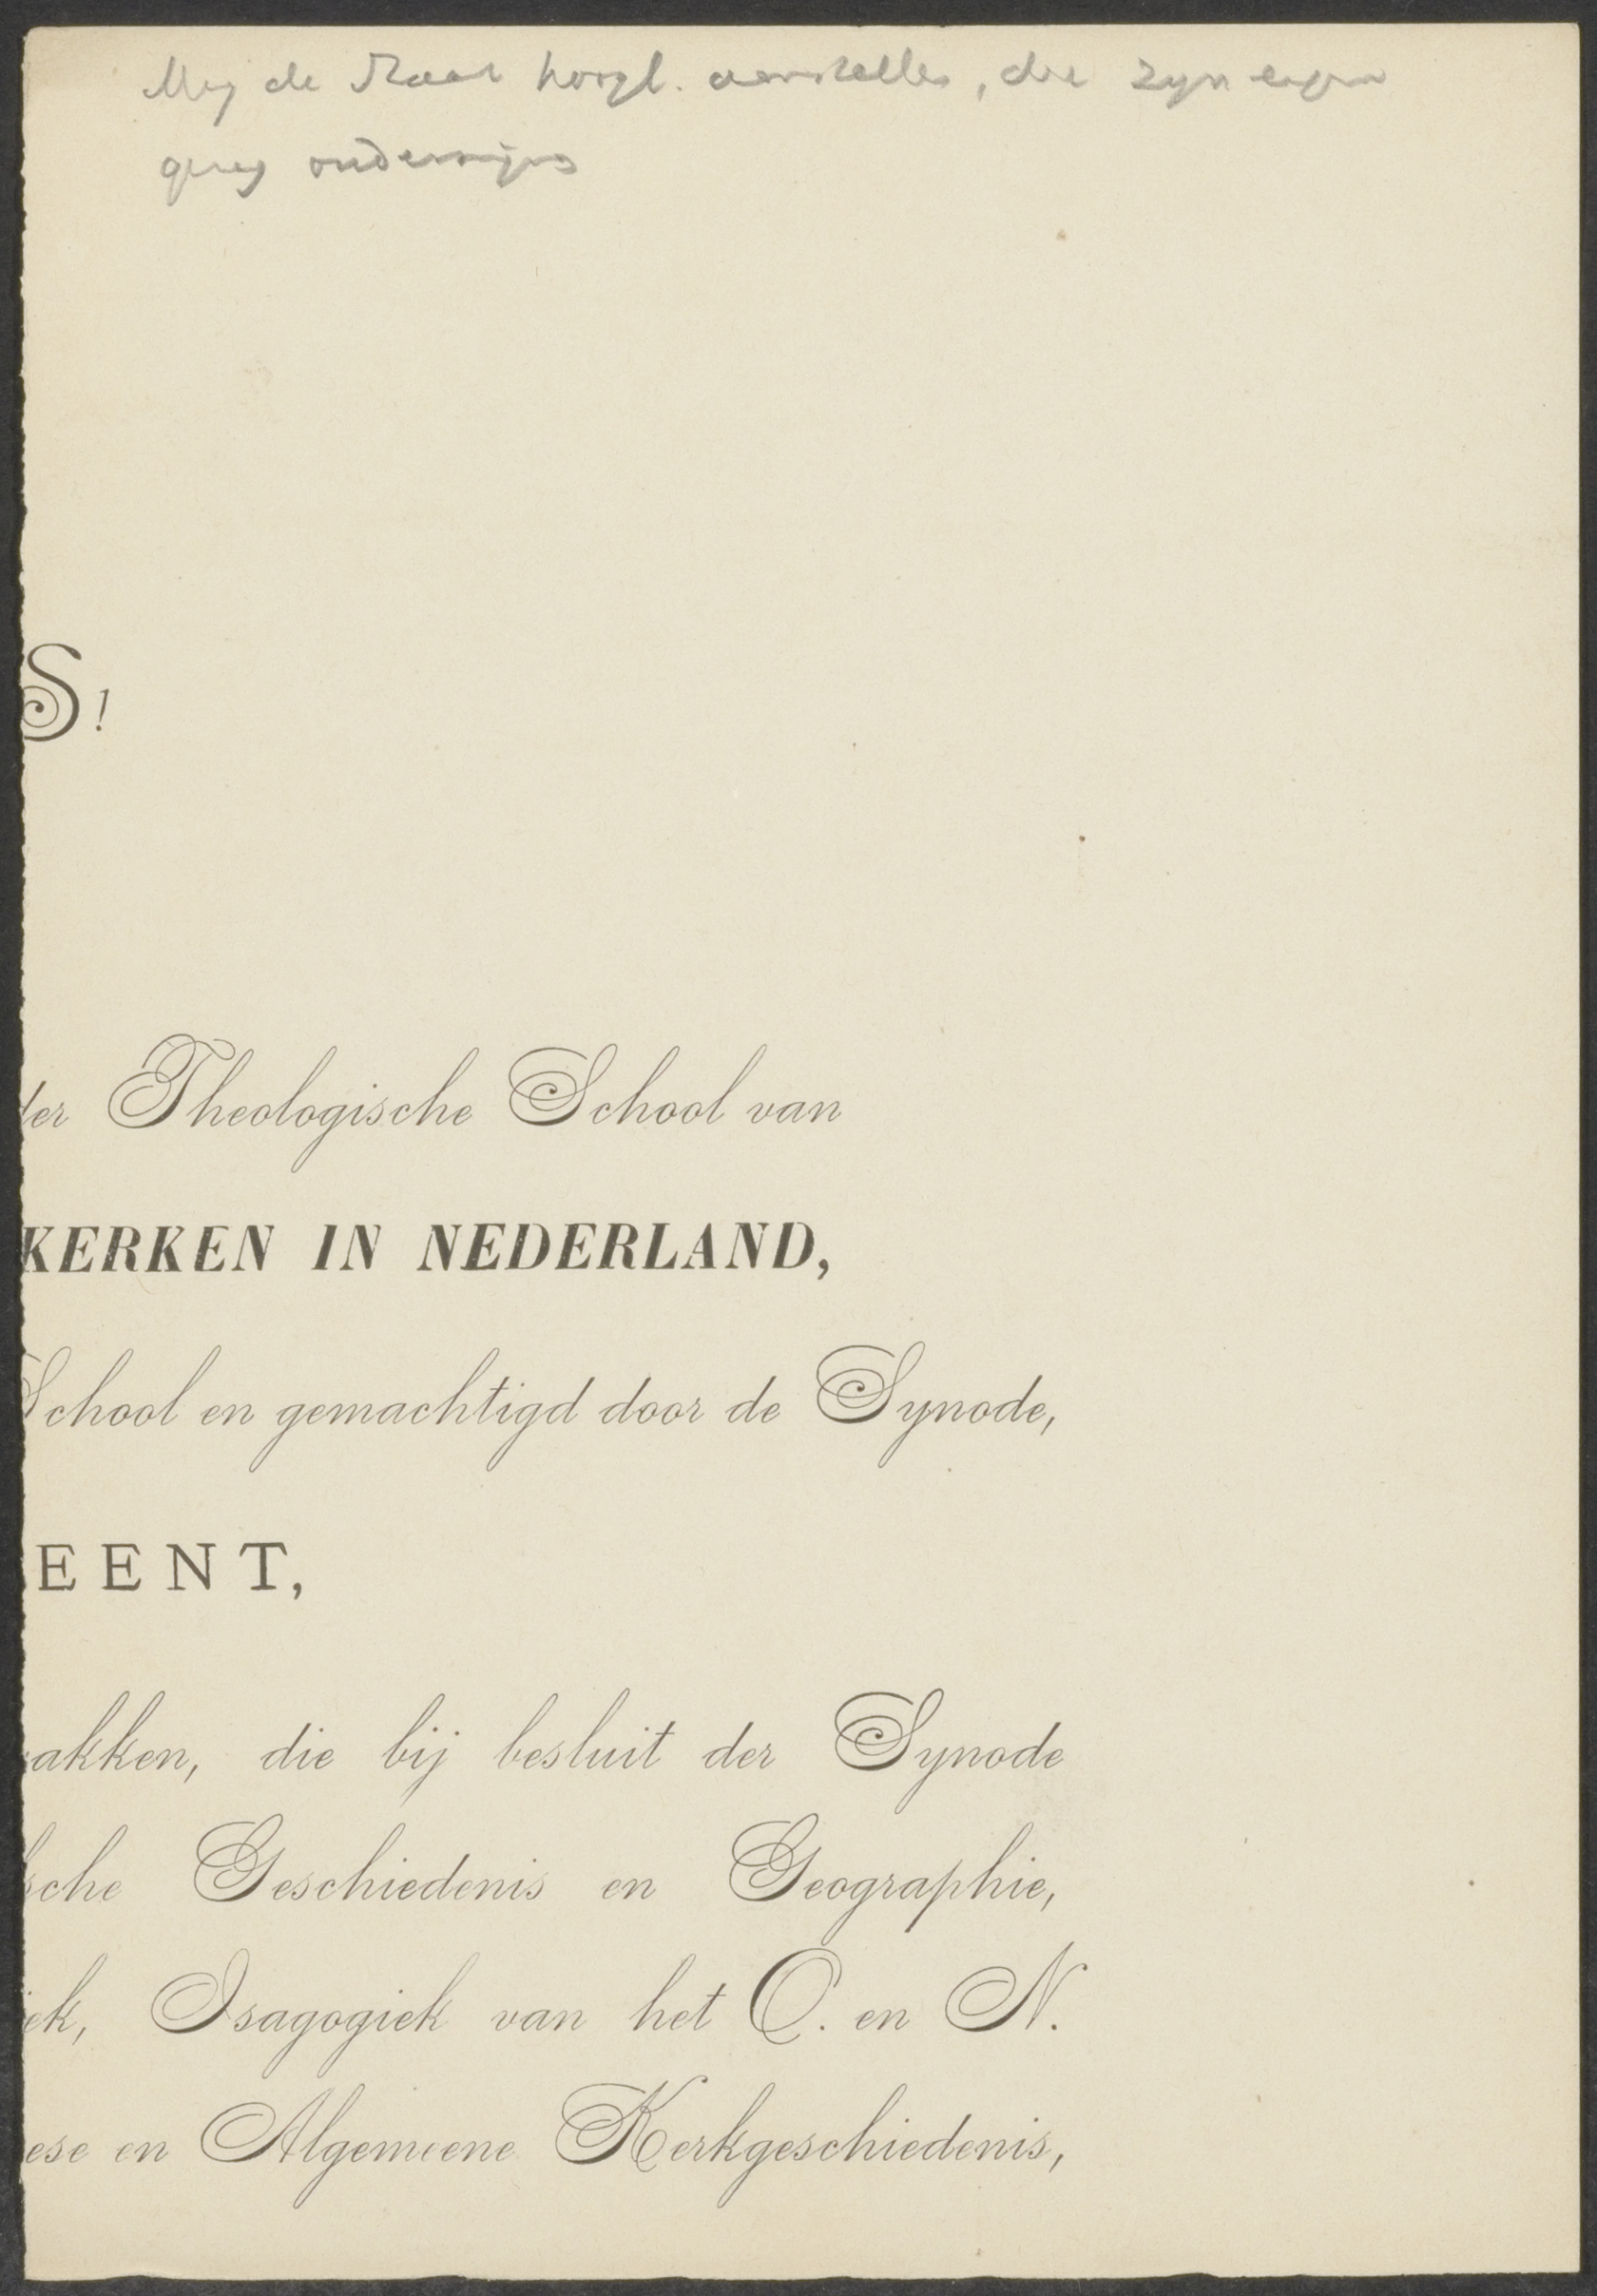 Mag de Staat hoogl. aanstellen, die zyn eigen
onderwijs
S!
der Theologische School van
KERKEN IN NEDERLAND,
School en gemachtigd door de Synode,
EENT,
akken, die bij besluit der Synode
sche Geschiedenis en Geographie,
iek, Isagogiek van het O. en N.
ese en Algemeene Kerkgeschiedenis,